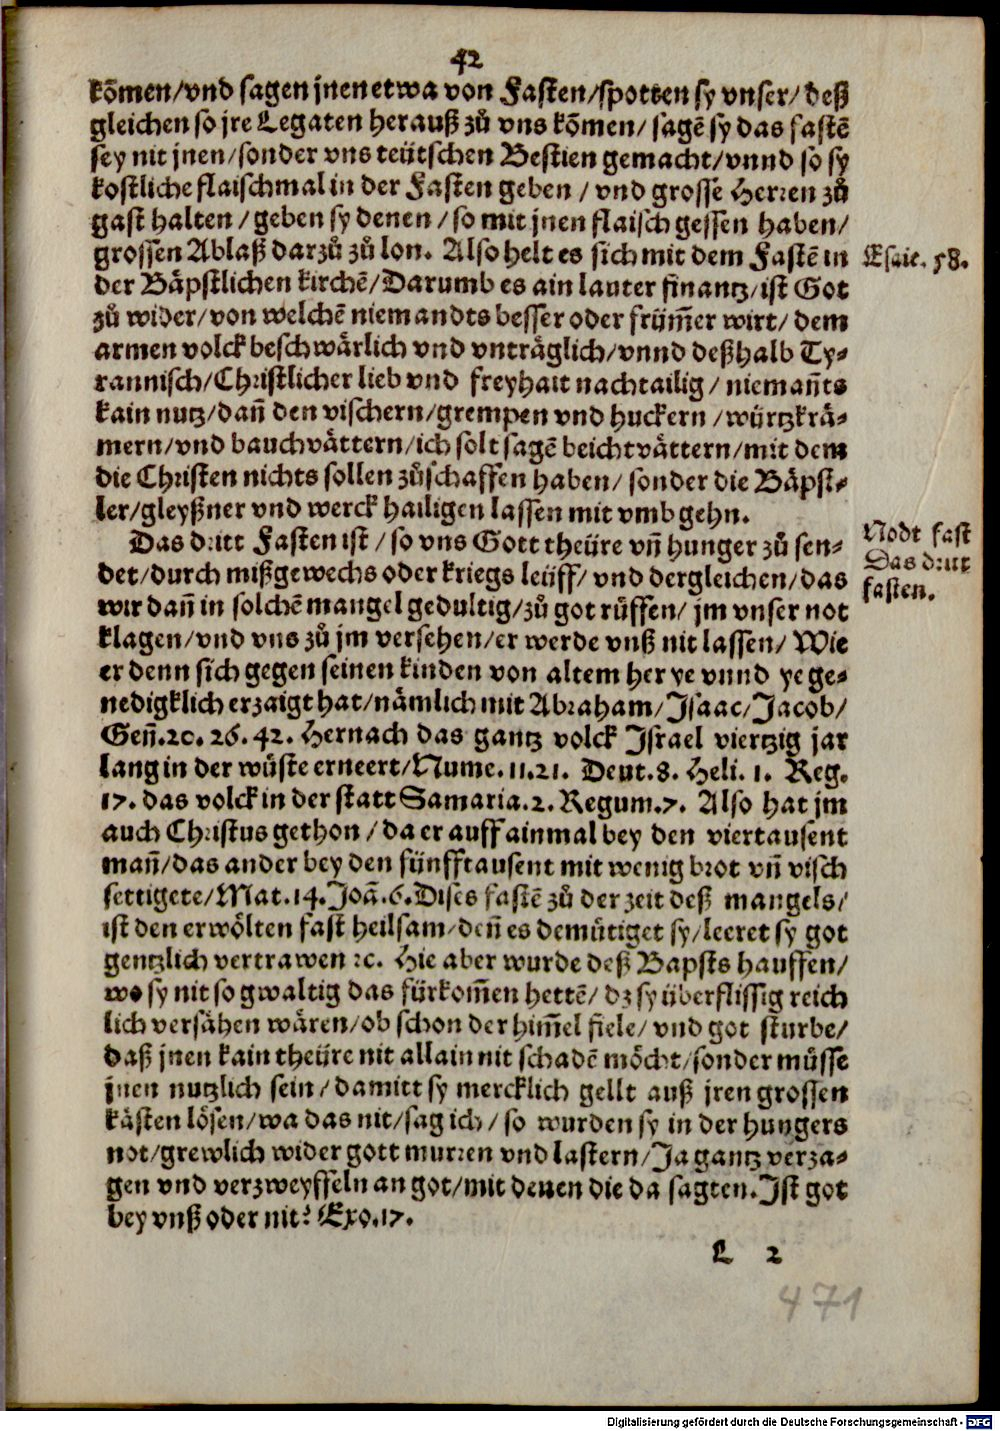 42
kōmen/vnd sagen jnen etwa von Fasten/spotten sy vnser/deß
gleichen so jre Legaten herauß zů vns kōmen/ sagē sy das fastē
sey nit jnen/sonder vns teütschen Bestien gemacht/vnnd so sy
kostliche flaischmal in der Fasten geben / vnd grosse Herren zů
gast halten / geben sy denen / so mit jnen flaisch gessen haben/
grossen Ablaß darzů zů lon. Also helt es sich mit dem Fastē in
Esaie. 58.
der Bäpstlichen kirchē/Darumb es ain lauter finantz/ist Got
zů wider/von welchē niemandts besser oder frūm̄er wirt/ dem
armen volck beschwärlich vnd vnträglich/vnnd deßhalb Ty-
rannisch/Christlicher lieb vnd freyhait nachtailig / niemañts
kain nutz/dañ den vischern/grempen vnd huckern /würtzkrä-
mern/vnd bauchvättern/ich solt sagē beichtvättern/mit dem
die Christen nichts sollen zůschaffen haben/ sonder die Bäpst-
ler/gleyßner vnd werck hailigen lassen mit vmb gehn.
Das dritt Fasten ist / so vns Gott theüre vñ hunger zů sen-
Nodt fast
Das dritt
fasten.
det/durch mißgewechs oder kriegs leüff/ vnd dergleichen/das
wir dañ in solchē mangel gedultig/zů got růffen/ jm vnser not
klagen/vnd vns zů jm versehen/er werde vnß nit lassen/ Wie
er denn sich gegen seinen kinden von altem her ye vnnd ye ge-
nedigklich erzaigt hat/nämlich mit Abraham/Isaac/Jacob/
Geñ.20. 26. 42. Hernach das gantz volck Israel viertzig jar
lang in der wüste erneert/Nume. 11.21. Deut.8. Heli. 1. Reg.
17. das volck in der statt Samaria.2. Regum.7. Also hat jm
auch Christus gethon / da er auff ainmal bey den viertausent
mañ/das ander bey den fünfftausent mit wenig brot vñ visch
settigete/Mat.14.Joā.6.Dises fastē zů der zeit deß mangels/
ist den erwölten fast heilsam/deñ es demütiget sy/leeret sy got
gentzlich vertrawen ꝛc. Hie aber wurde deß Bapsts hauffen/
wo sy nit so gwaltig das fürkom̄en hettē/ dz sy überflissig reich
lich versähen wären/ob schon der him̄el fiele/ vnd got sturbe/
daß jnen kain theüre nit allain nit schadē möcht/sonder müsse
jnen nutzlich sein/damitt sy mercklich gellt auß jren grossen
kästen lösen/wa das nit/sag ich/ so wurden sy in der hungers
not/grewlich wider gott murren vnd lastern/Ja gantz verza-
gen vnd verzweyffeln an got/mit denen die da sagten.Ist got
bey vnß oder nit? Exo.17.
L 2
471
Digitalisierung gefördert durch die Deutsche Forschungsgemeinschaft - DFG